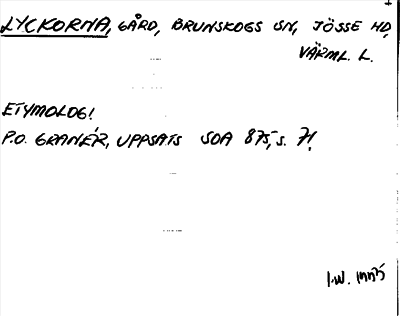 LYCKORNA, GÅRD, BRUNSKOGS SN, JÖSSE HD,
VÄRML. L.
ETYMOLOG!
P.O. GRANÉR, UPPSATS SOA 875, S. 71!
I.W.